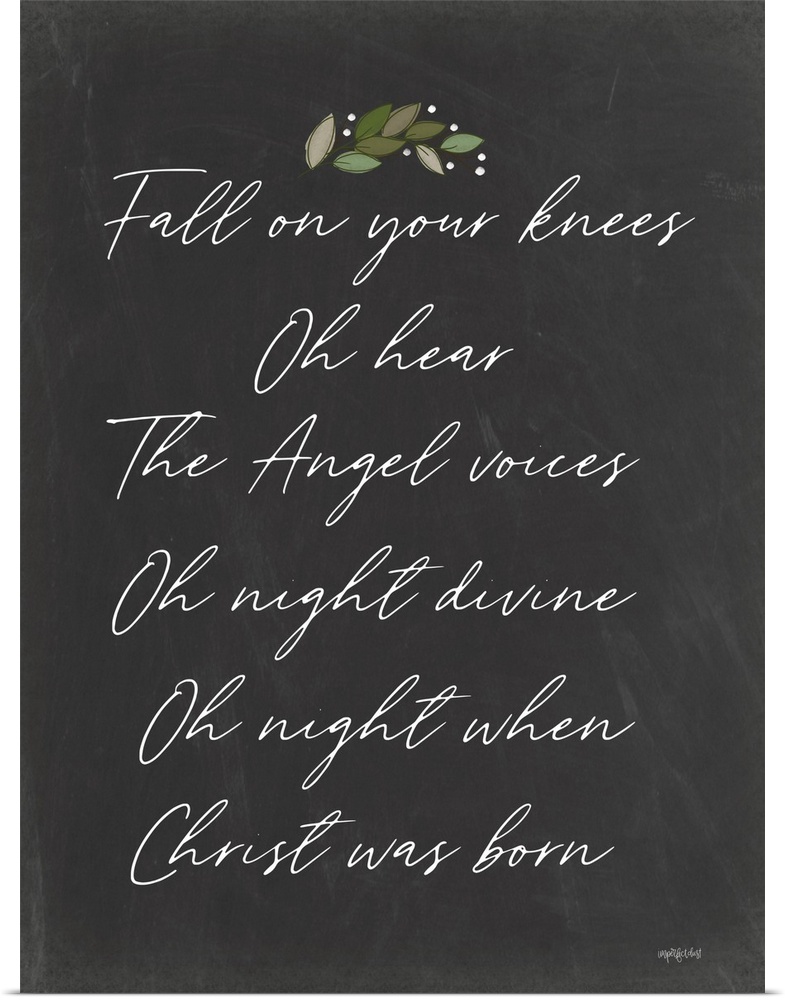 Fall on your knees
Oh hear
The Angel voices
Oh night divine
Oh night when
Christ was born
imperfect dust